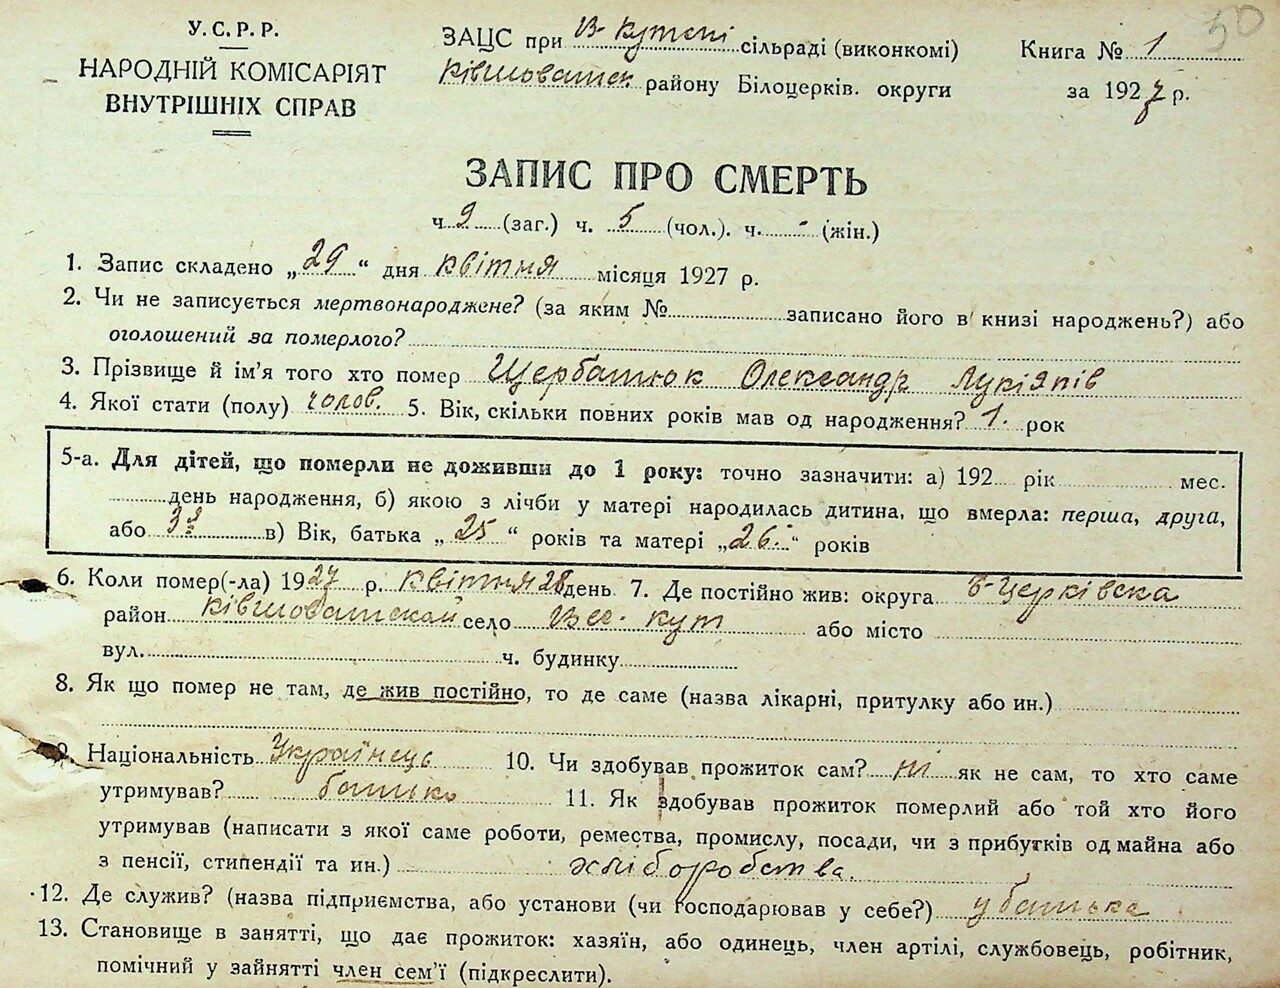 50
У.С.Р.Р.
НАРОДНІЙ КОМІСАРІЯТ
ВНУТРІШНІХ СПРАВ
ЗАЦС при В-Кутені сільраді (виконкомі)
Ківшоватск району Білоцерків. округи
Книга № 1
за 1927 р.
ЗАПИС ПРО СМЕРТЬ
ч. 9 (заг.) ч. 5 (чол.). ч. - (жін.)
1. Запис складено „29“ дня квітня місяця 1927 р.
2. Чи не записується мертвонароджене? (за яким № записано його в книзі народжень?) або
оголошений за померлого?
3. Прізвище й ім'я того хто помер Щербатюк Олександр Лукіянів
4. Якої стати (полу) чолов. 5. Вік, скільки повних років мав од народження? 1. рок
5-а. Для дітей, що померли не доживши до 1 року: точно зазначити: а) 192 рік мес.
день народження, б) якою з лічби у матері народилась дитина, що вмерла: перша, друга,
або 3я в) Вік, батька „25“ років та матері „26.“ років
6. Коли помер(-ла) 1927 р. квітня 28 день 7. Де постійно жив: округа Б-Церківска
район Ківшоватский село Вел. Кут або місто
вул. ч. будинку
8. Як що помер не там, де жив постійно, то де саме (назва лікарні, притулку або ин.)
9. Національність Українець 10. Чи здобував прожиток сам? ні як не сам, то хто саме
утримував? батько 11. Як здобував прожиток померлий або той хто його
утримував (написати з якої саме роботи, ремества, промислу, посади, чи з прибутків од майна або
з пенсії, стипендії та ин.) хліборобства.
12. Де служив? (назва підприємства, або установи (чи господарював у себе?) у батька
13. Становище в занятті, що дає прожиток: хазяїн, або одинець, член артілі, службовець, робітник,
помічний у зайнятті член сем'ї (підкреслити).